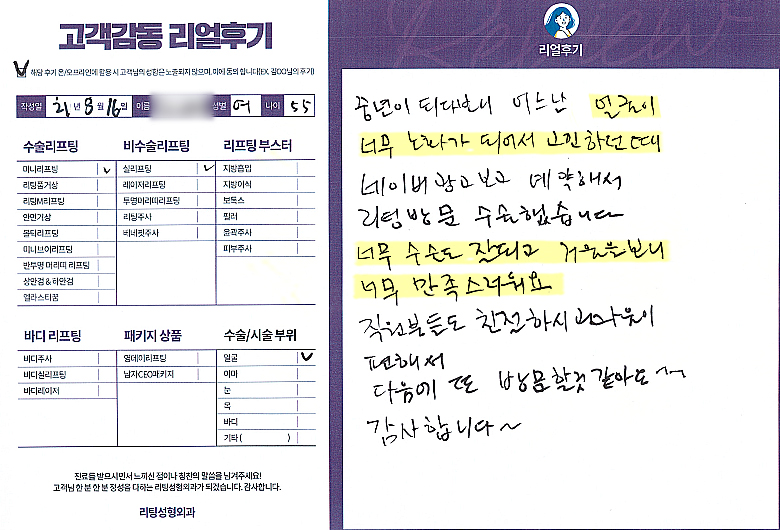 고객감동 리얼후기
해당 후기 온/오프라인에 활용 시 고객님의 성함은 노출되지 않으며, 이에 동의 합니다(EX. 김OO님의 후기)
작성일 21년 8월 16일 이름 성별 여 나이 55
수술리프팅
미니리프팅
리팅풀거상
리팅M리프팅
안면거상
울탁리프팅
미니브이리프팅
반투명 머리띠 리프팅
상안검 & 하안검
엘라스티꿈
비수술리프팅
실리프팅
레이저리프팅
투명머리띠리프팅
리팅주사
베네핏주사
리프팅 부스터
지방흡입
지방이식
보톡스
필러
윤곽주사
피부주사
바디 리프팅
바디주사
바디실리프팅
바디레이저
패키지 상품
원데이리프팅
남자CEO패키지
수술/시술 부위
얼굴
이마
눈
목
바디
기타 ( )
진료를 받으시면서 느끼신 점이나 칭찬의 말씀을 남겨주세요!
고객님 한 분 한 분 정성을 다하는 리팅성형외과가 되겠습니다. 감사합니다.
리팅성형외과
Review
리얼후기
중년이 되다보니 어느날 얼굴이
너무 노화가 되어서 고민하던 때
네이버 광고보고 예약해서
리팅방문 수술했습니다
너무 수술도 잘되고 거울을보니
너무 만족스러워요
직원분들도 친절하시고 마음이
편해서
다음에 또 방문할것 같아요~
감사합니다~